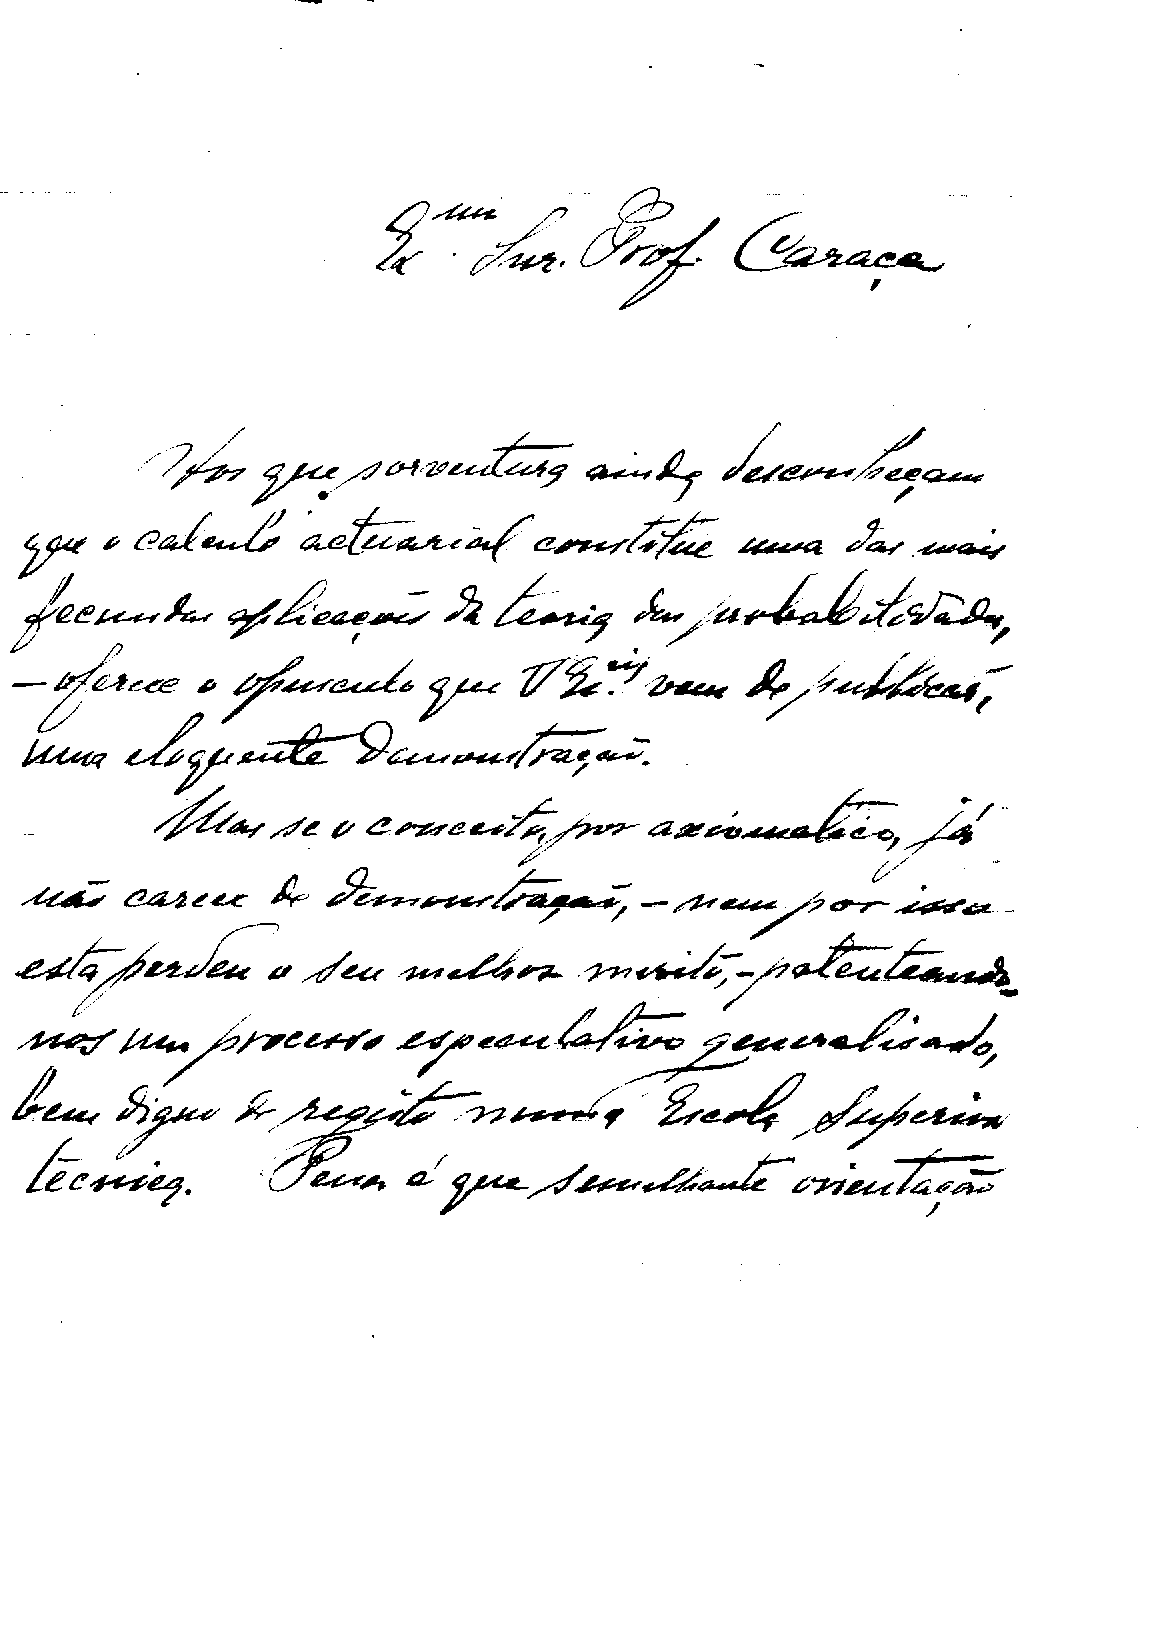 Exmo Snr. Prof. Caraça
Aos que porventura ainda desconheçam
que o calculo actuarial constitue uma das mais
fecundas aplicações da teoria das probabilidades,
– oferece o opusculo que V Exia. vem de publicar,
uma eloquente demonstração.
Mas se o conceito, por axiomatico, já
não carece de demonstração, – nem por isso
esta perdeu o seu melhor merito, – patenteando-
nos um processo especulativo generalisado,
bem digno de registo numa Escola Superior
técnica. Pena é que semelhante orientação